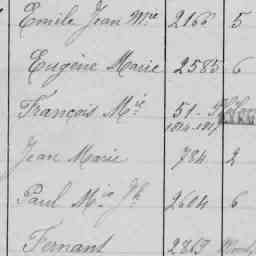 Emile Jean Mie 2166 5
Eugène Marie 2585 6
François Mie 51
1814-1817
Jean Marie 784 2
Paul Mie Jh 2604 6
Fernant 2263